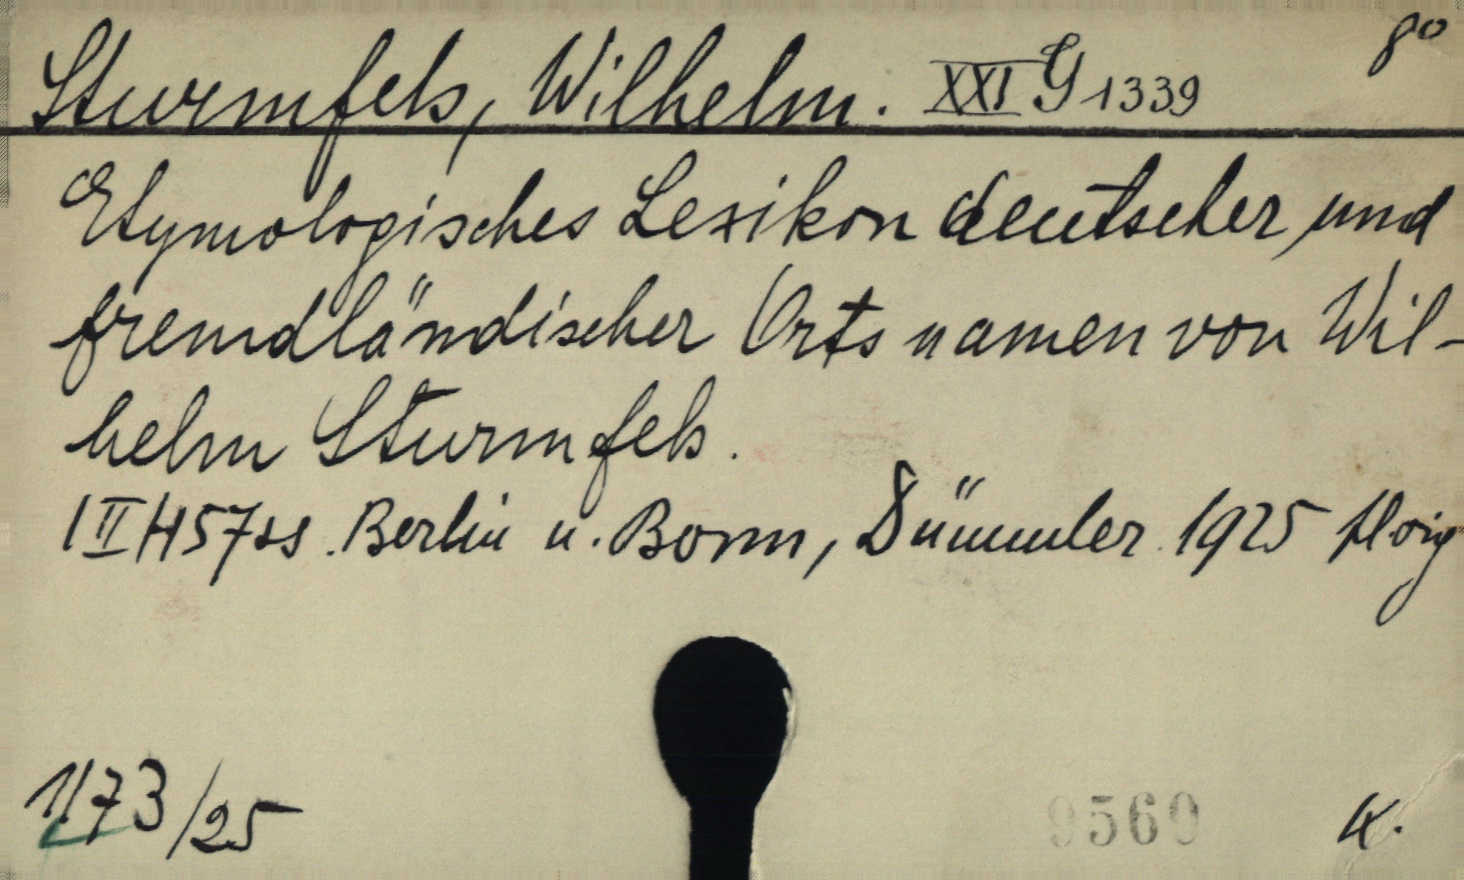 8°
Sturmfels, Wilhelm. XXI G 1339
Etymologisches Lexikon deutscher und
fremdländischer Ortsnamen von Wil-
helm Sturmfels.
Berlin u. Bonn, Dümmler 1925
1173/25
9560